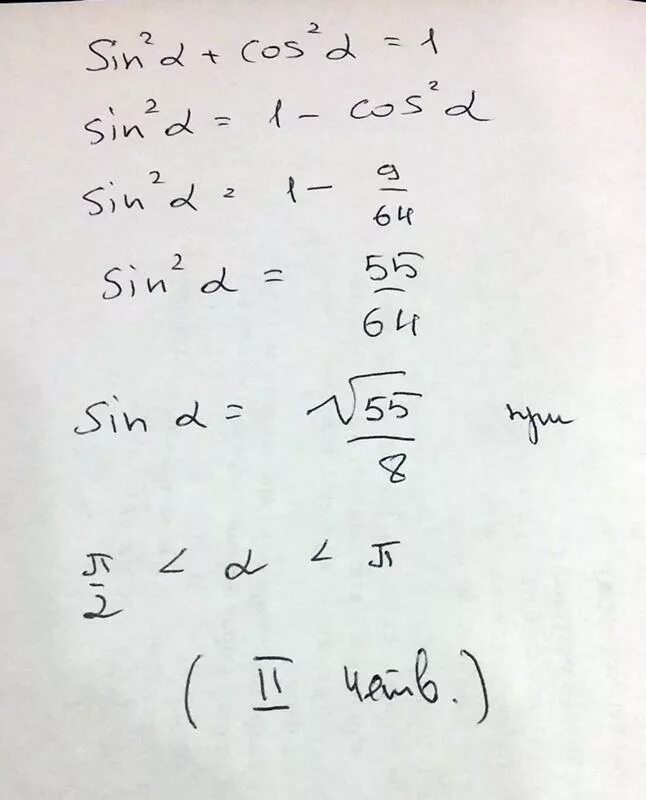 sin²α + cos²α = 1
sin²α = 1 - cos²α
sin²α = 1 - 9/64
sin²α = 55/64
sin α = √55/8 при
π/2 < α < π
(II четв.)